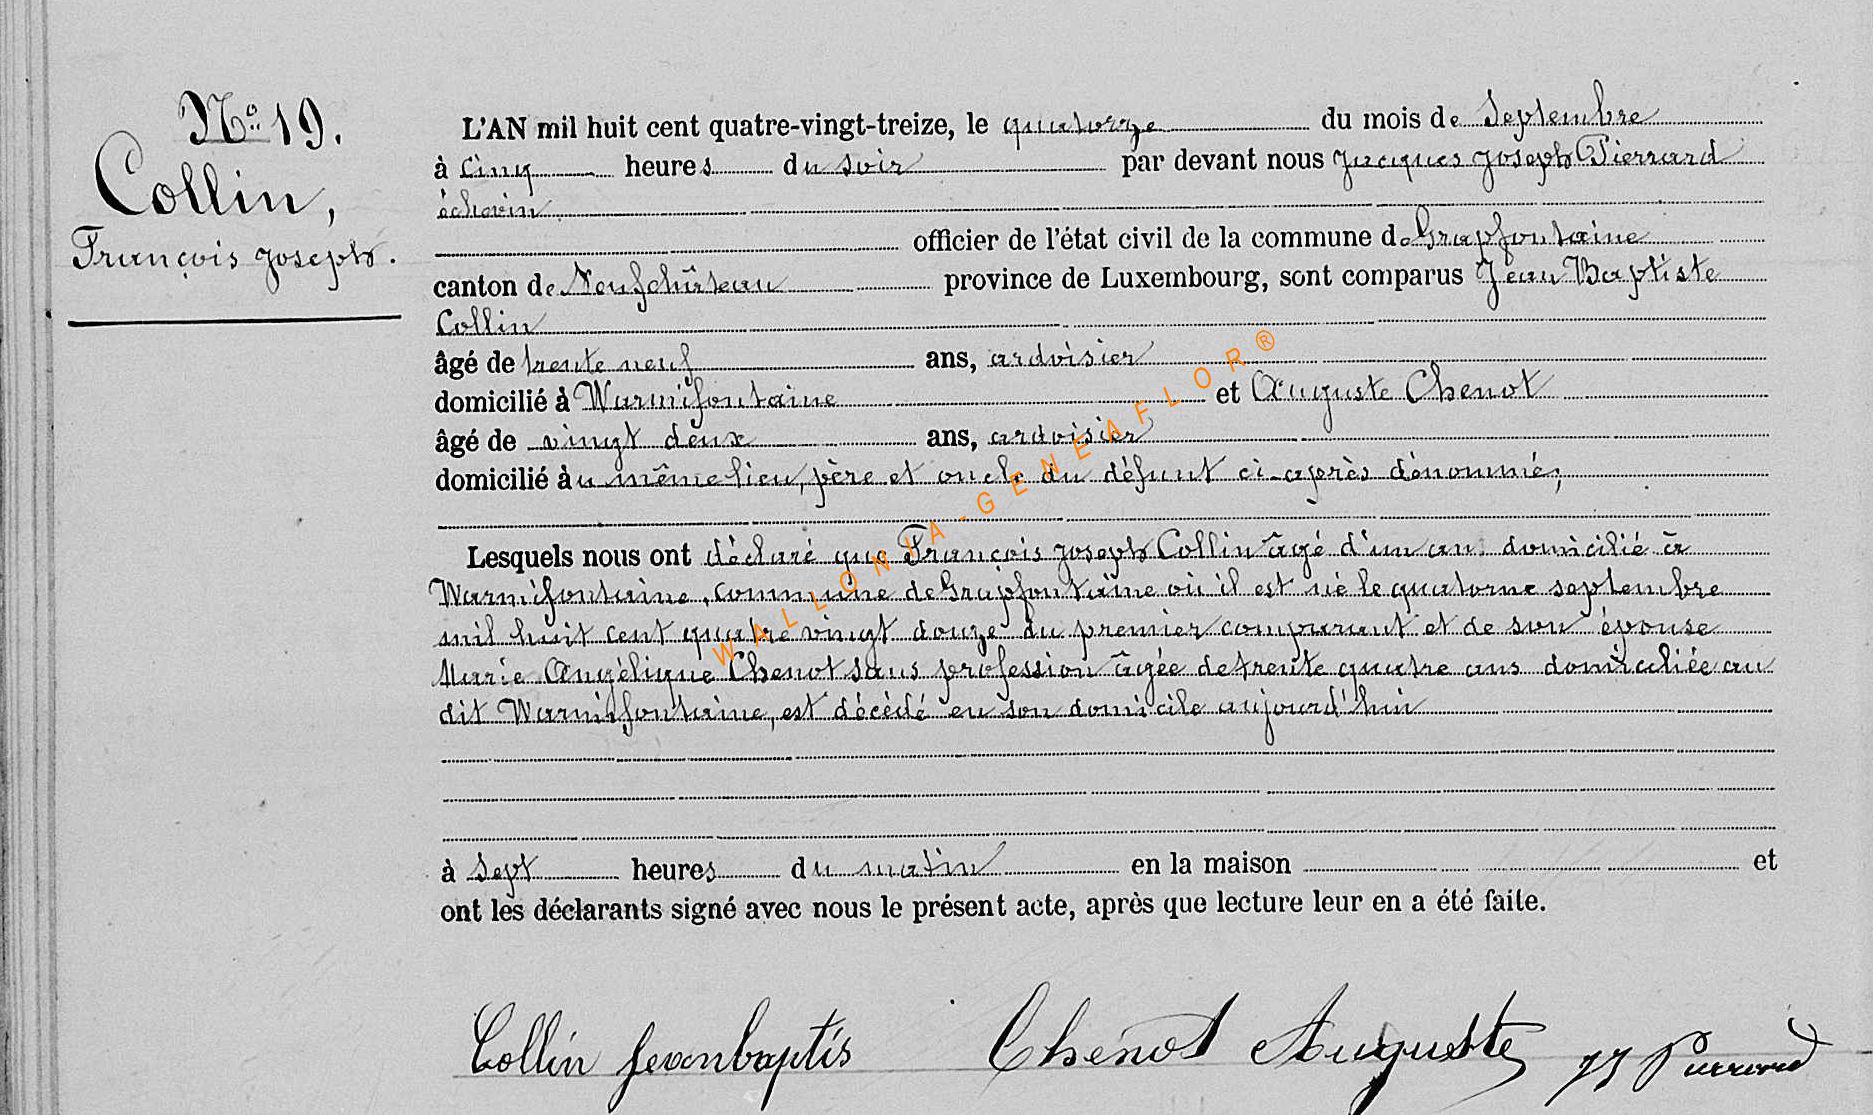 Nº 19.
Collin,
François Joseph.
L'AN mil huit cent quatre-vingt-treize, le quatorze du mois de Septembre
à cinq heures du soir par devant nous Jacques Joseph Pierrard
échevin
officier de l'état civil de la commune de Grapfontaine
canton de Neufchâteau province de Luxembourg, sont comparus Jean Baptiste
Collin
âgé de trente neuf ans, ardoisier
domicilié à Warmifontaine et Auguste Chenot
âgé de vingt deux ans, ardoisier
domicilié au même lieu, père et oncle du défunt ci-après dénommé;
Lesquels nous ont déclaré que François Joseph Collin âgé d'un an domicilié à
Warmifontaine, commune de Grapfontaine où il est né le quatorne septembre
mil huit cent quatre vingt douze du premier comparant et de son épouse
Marie Angélique Chenot sans profession âgée de trente quatre ans domiciliée au
dit Warmifontaine, est décédé en son domicile aujourd'hui
à sept heures du matin en la maison et
ont les déclarants signé avec nous le présent acte, après que lecture leur en a été faite.
Collin Jeanbaptis Chenot Auguste JJ Pierrard
WALLONIA-GENEAFLOR®